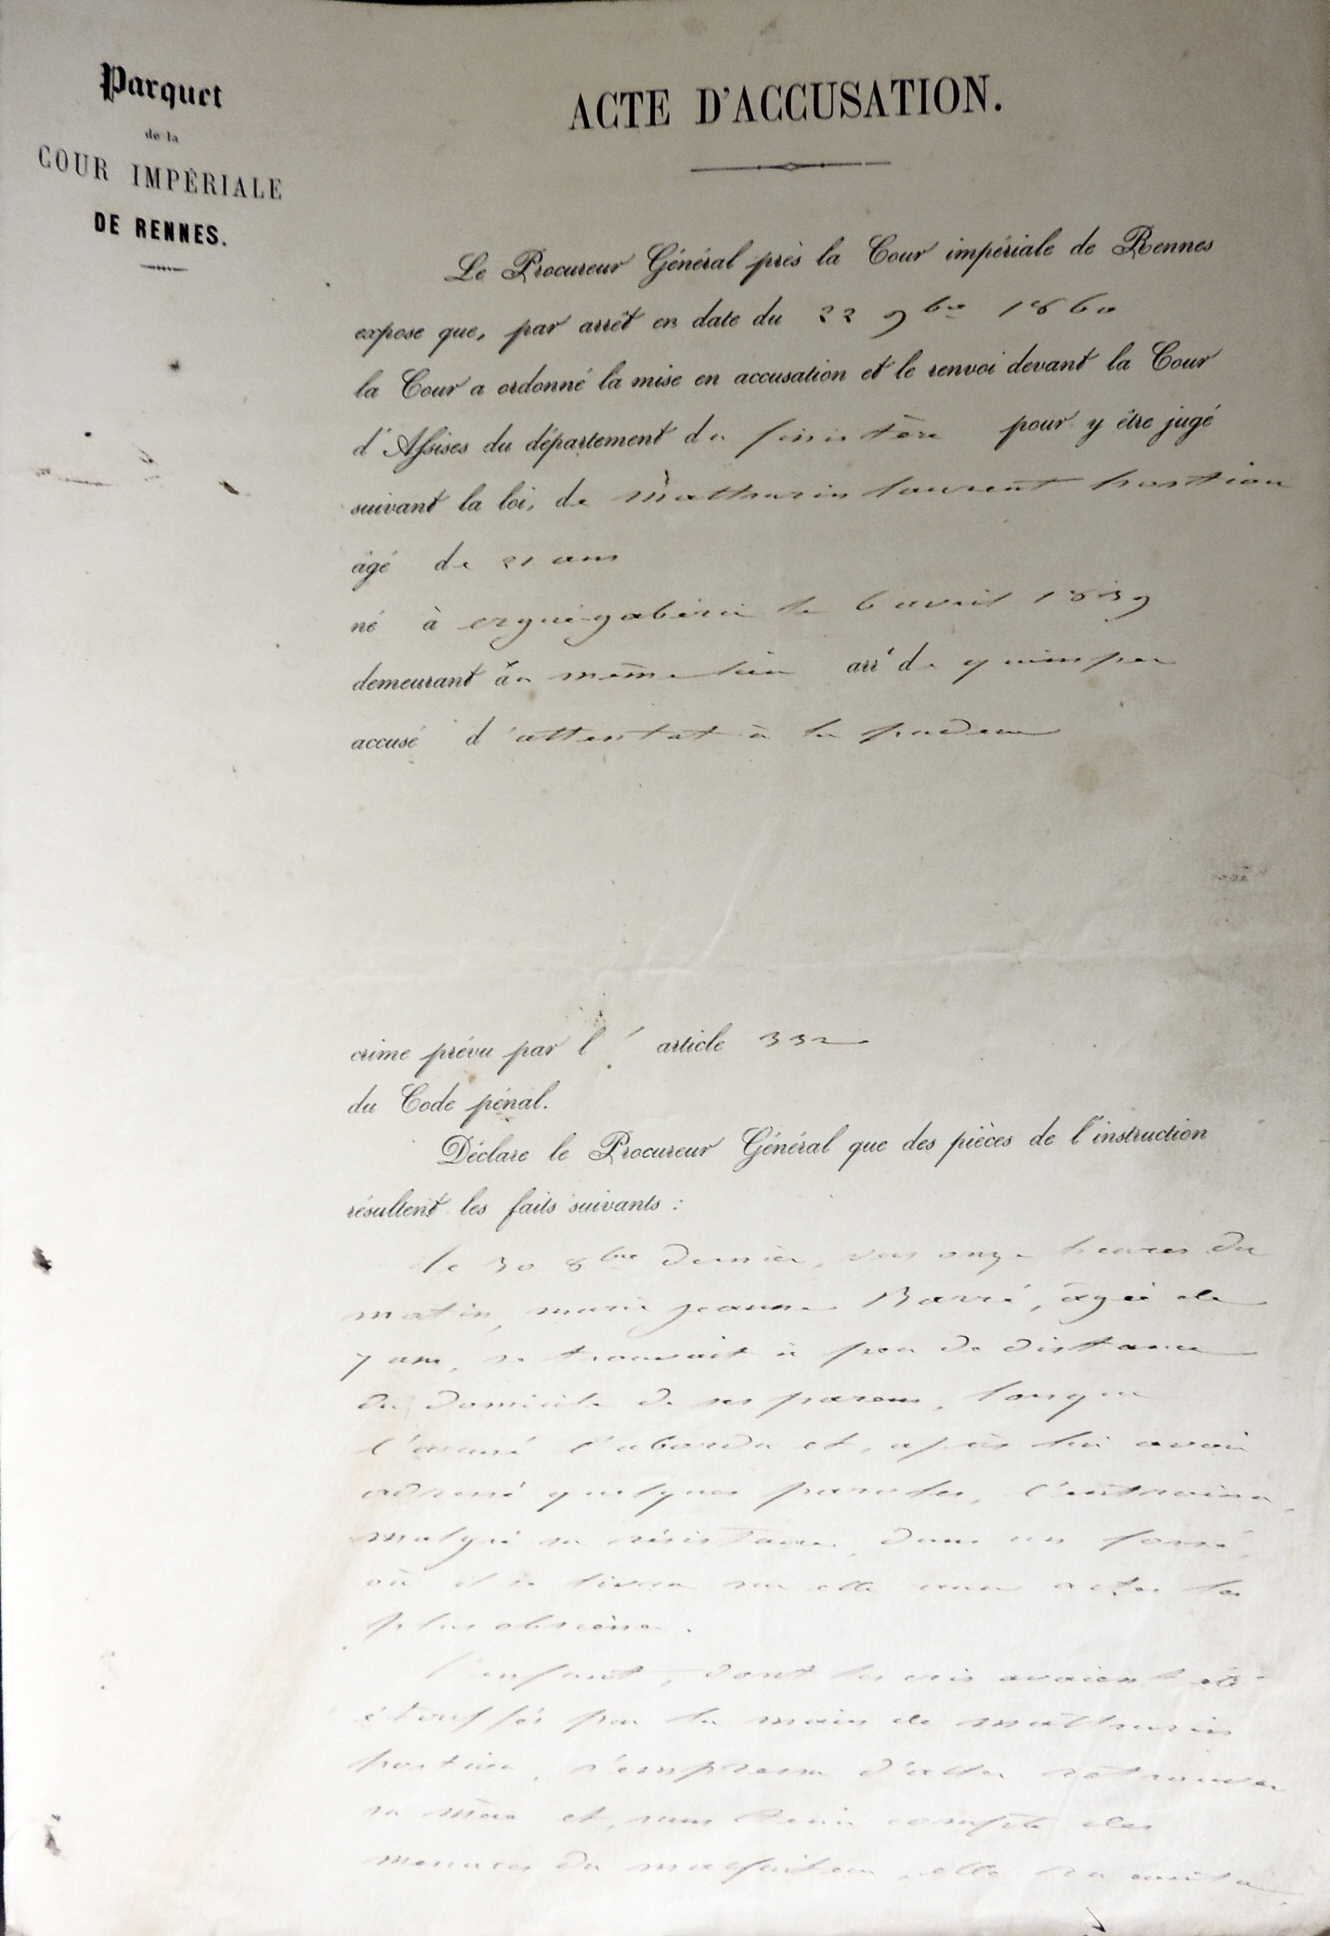 Parquet
de la
COUR IMPÉRIALE
DE RENNES.
ACTE D'ACCUSATION.
Le Procureur Général près la Cour impériale de Rennes
expose que, par arrêt en date du 22 9bre 1860
la Cour a ordonné la mise en accusation et le renvoi devant la Cour
d'Assises du département du finistère pour y être jugé
suivant la loi, de Mathurin laurent
âgé de 21 ans
né à erguégabéric le 6 avril 1839
demeurant au même lieu arrt de quimper
accusé d'attentat à la pudeur
crime prévu par l' article 332
du Code pénal.
Déclare le Procureur Général que des pièces de l'instruction
résultent les faits suivants :
le 30 8bre dernier, vers onze heures du
matin, marie jeanne Barré, âgée de
7 ans, se trouvait à peu de distance
du domicile de ses parens, lorsque
l'accusé l'aborda et, après lui avoir
adressé quelques paroles, l'entraina,
malgré sa résistance, dans un fossé,
où il se livra sur elle aux actes les
plus obscènes.
l'enfant, dont les cris avaient été
étouffés par la main de mathurin
s'empressa d'aller retrouver
sa mère et, sans tenir compte des
menaces du malfaiteur, elle raconta